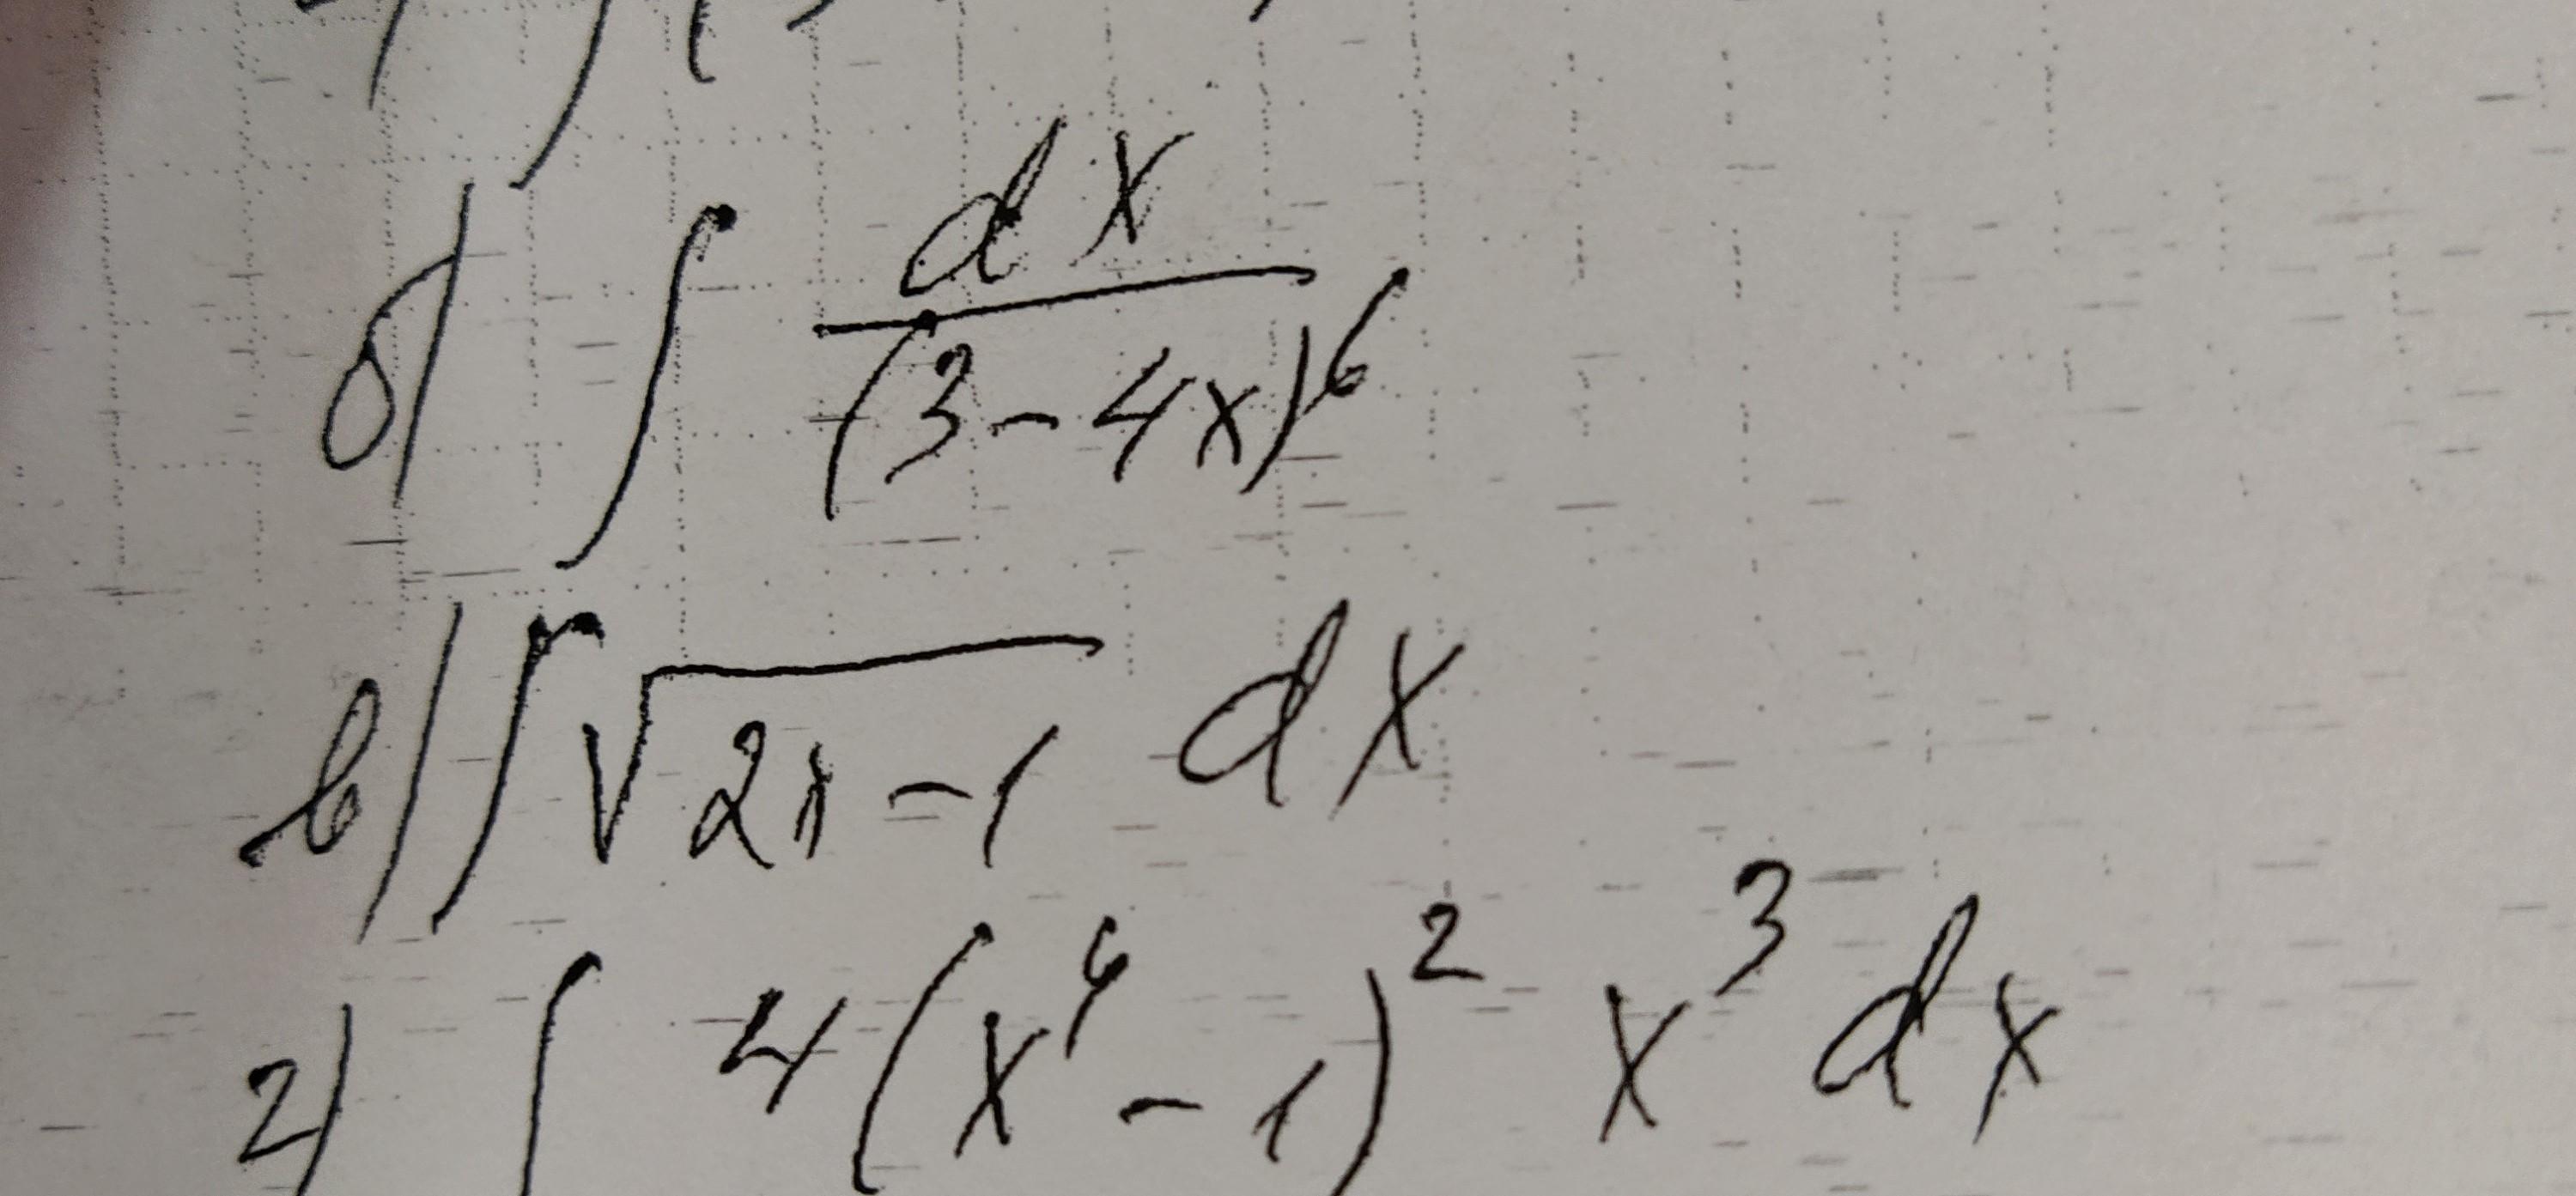 б) ∫ dx / (3 - 4x)^6
в) ∫ √(2x - 1) dx
г) ∫ 4(x^4 - 1)^2 x^3 dx